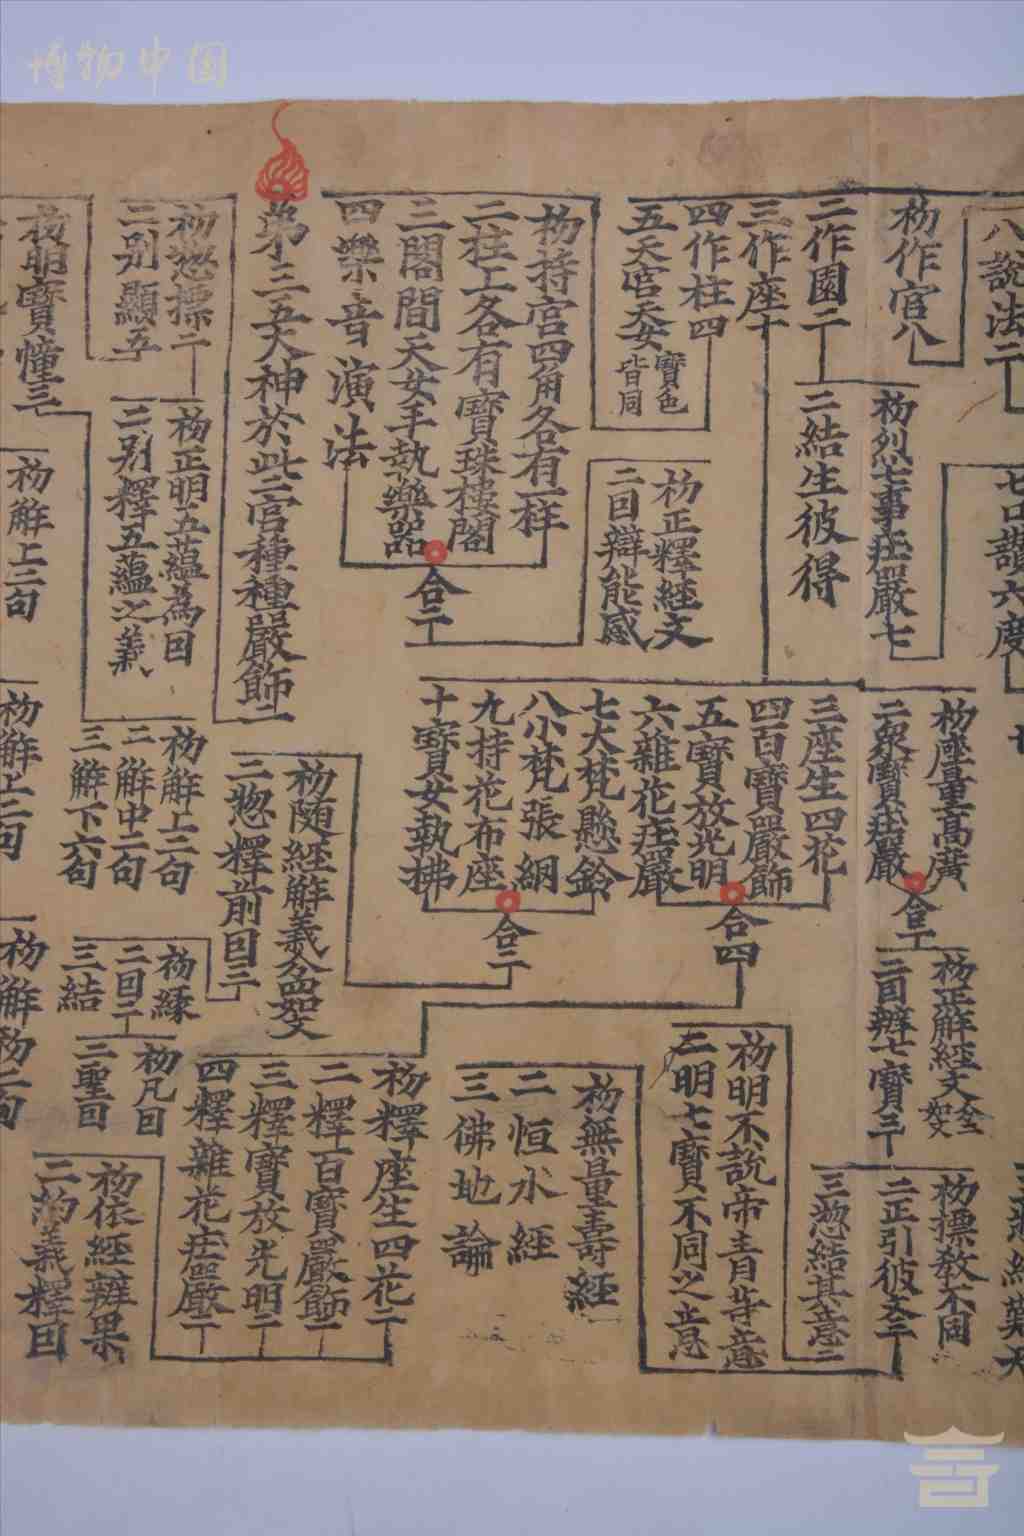 博物中国
八說法二
七口讚六度
初作宮八
二作園二
三作座十
四作柱四
五天宮天女寶色皆同
初烈七事庄嚴七
二結生彼得
初座量高廣
二衆寶庄嚴
合二
初正解經文
二因辨七寶三
初標教不同
二正引彼文二
三惣結其意二
初明不說帝青等意
二明七寶不同之意
三座生四花
四百寶嚴飾
五寶放光明
六雜花庄嚴
合四
七大梵懸鈴
八小梵張網
九持花布座
十寶女執拂
合二
初正釋經文
二因辯能感
初持宮四角各有一柱
二柱上各有寶珠樓閣
三閣間天女手執樂器
四樂音演法
合二
初無量壽經
二恒水經
三佛地論
初釋座生四花二
二釋百寶嚴飾二
三釋寶放光明二
四釋雜花庄嚴二
第三五大神於此二宮種種嚴飾二
初隨經解義
二惣釋前因三
初緣
二因二
三結
初凡因
二聖因
初依經辨果
二約義釋因
初惣標二
二别顯五
初正明五蘊為因
二别釋五蘊之義
初解上二句
二解中二句
三解下六句
初明寶幢三
初解上二句
初解上二句
初解初二句